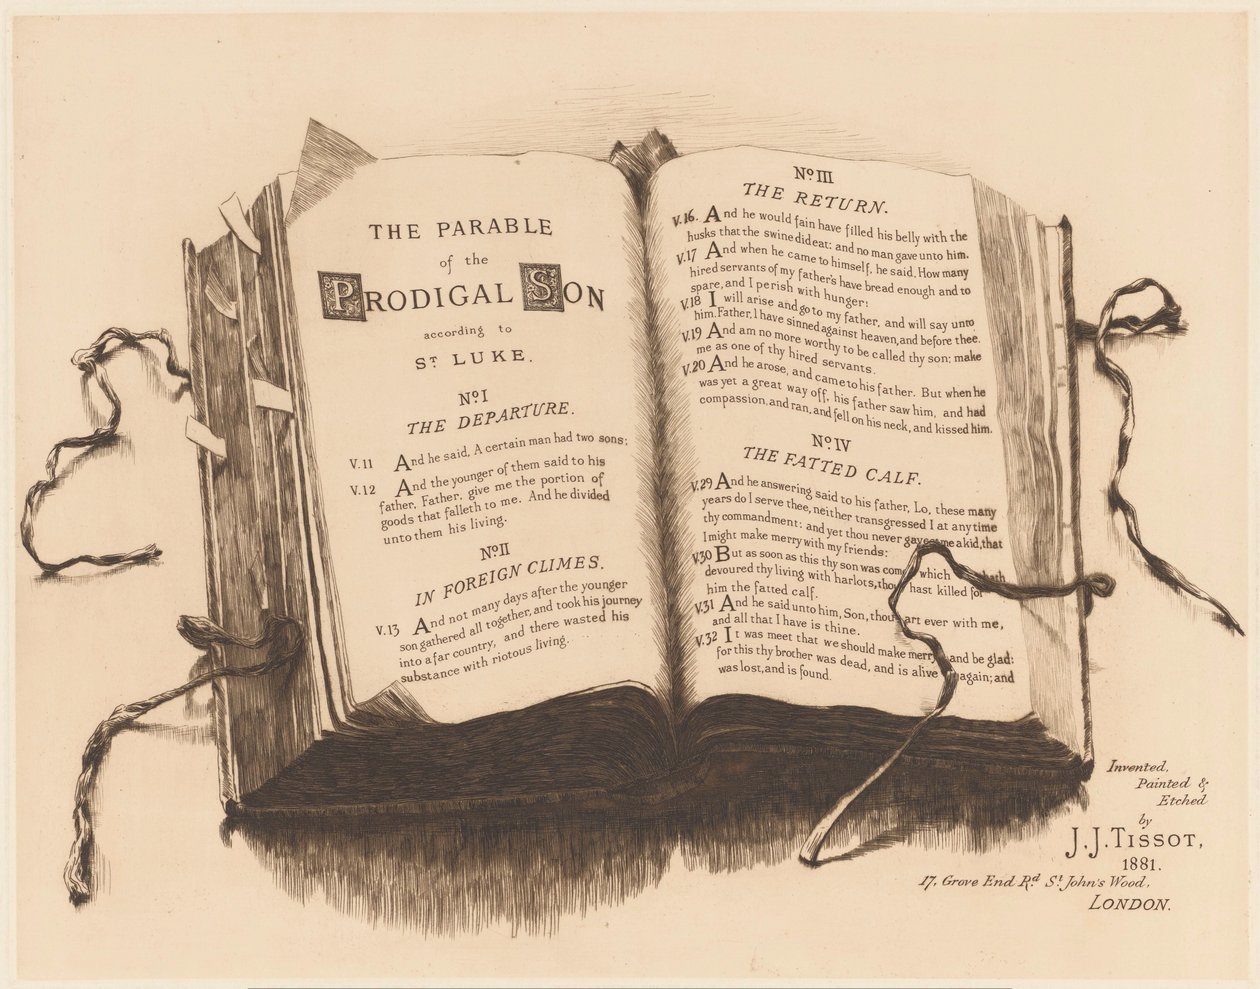 THE PARABLE
of the
PRODIGAL SON
according to
ST LUKE.
No I
THE DEPARTURE.
V.11 And he said, A certain man had two sons;
V.12 And the younger of them said to his
father, Father, give me the portion of
goods that falleth to me. And he divided
unto them his living.
No II
IN FOREIGN CLIMES.
V.13 And not many days after the younger
son gathered all together, and took his journey
into a far country, and there wasted his
substance with riotous living.
No III
THE RETURN.
V.16. And he would fain have filled his belly with the
husks that the swine did eat: and no man gave unto him.
V.17 And when he came to himself, he said, How many
hired servants of my father's have bread enough and to
spare, and I perish with hunger:
V.18 I will arise and go to my father, and will say unto
him, Father, I have sinned against heaven, and before thee.
V.19 And am no more worthy to be called thy son: make
me as one of thy hired servants.
V.20 And he arose, and came to his father. But when he
was yet a great way off, his father saw him, and had
compassion, and ran, and fell on his neck, and kissed him.
No IV
THE FATTED CALF.
V.29 And he answering said to his father, Lo, these many
years do I serve thee, neither transgressed I at any time
thy commandment: and yet thou never gavest me a kid, that
I might make merry with my friends:
V.30 But as soon as this thy son was come which hath
devoured thy living with harlots, thou hast killed for
him the fatted calf.
V.31 And he said unto him, Son, thou art ever with me,
and all that I have is thine.
V.32 It was meet that we should make merry and be glad:
for this thy brother was dead, and is alive again; and
was lost, and is found.
Invented,
Painted &
Etched
by
J.J. TISSOT,
1881.
17, Grove End Rd. St. John's Wood,
LONDON.